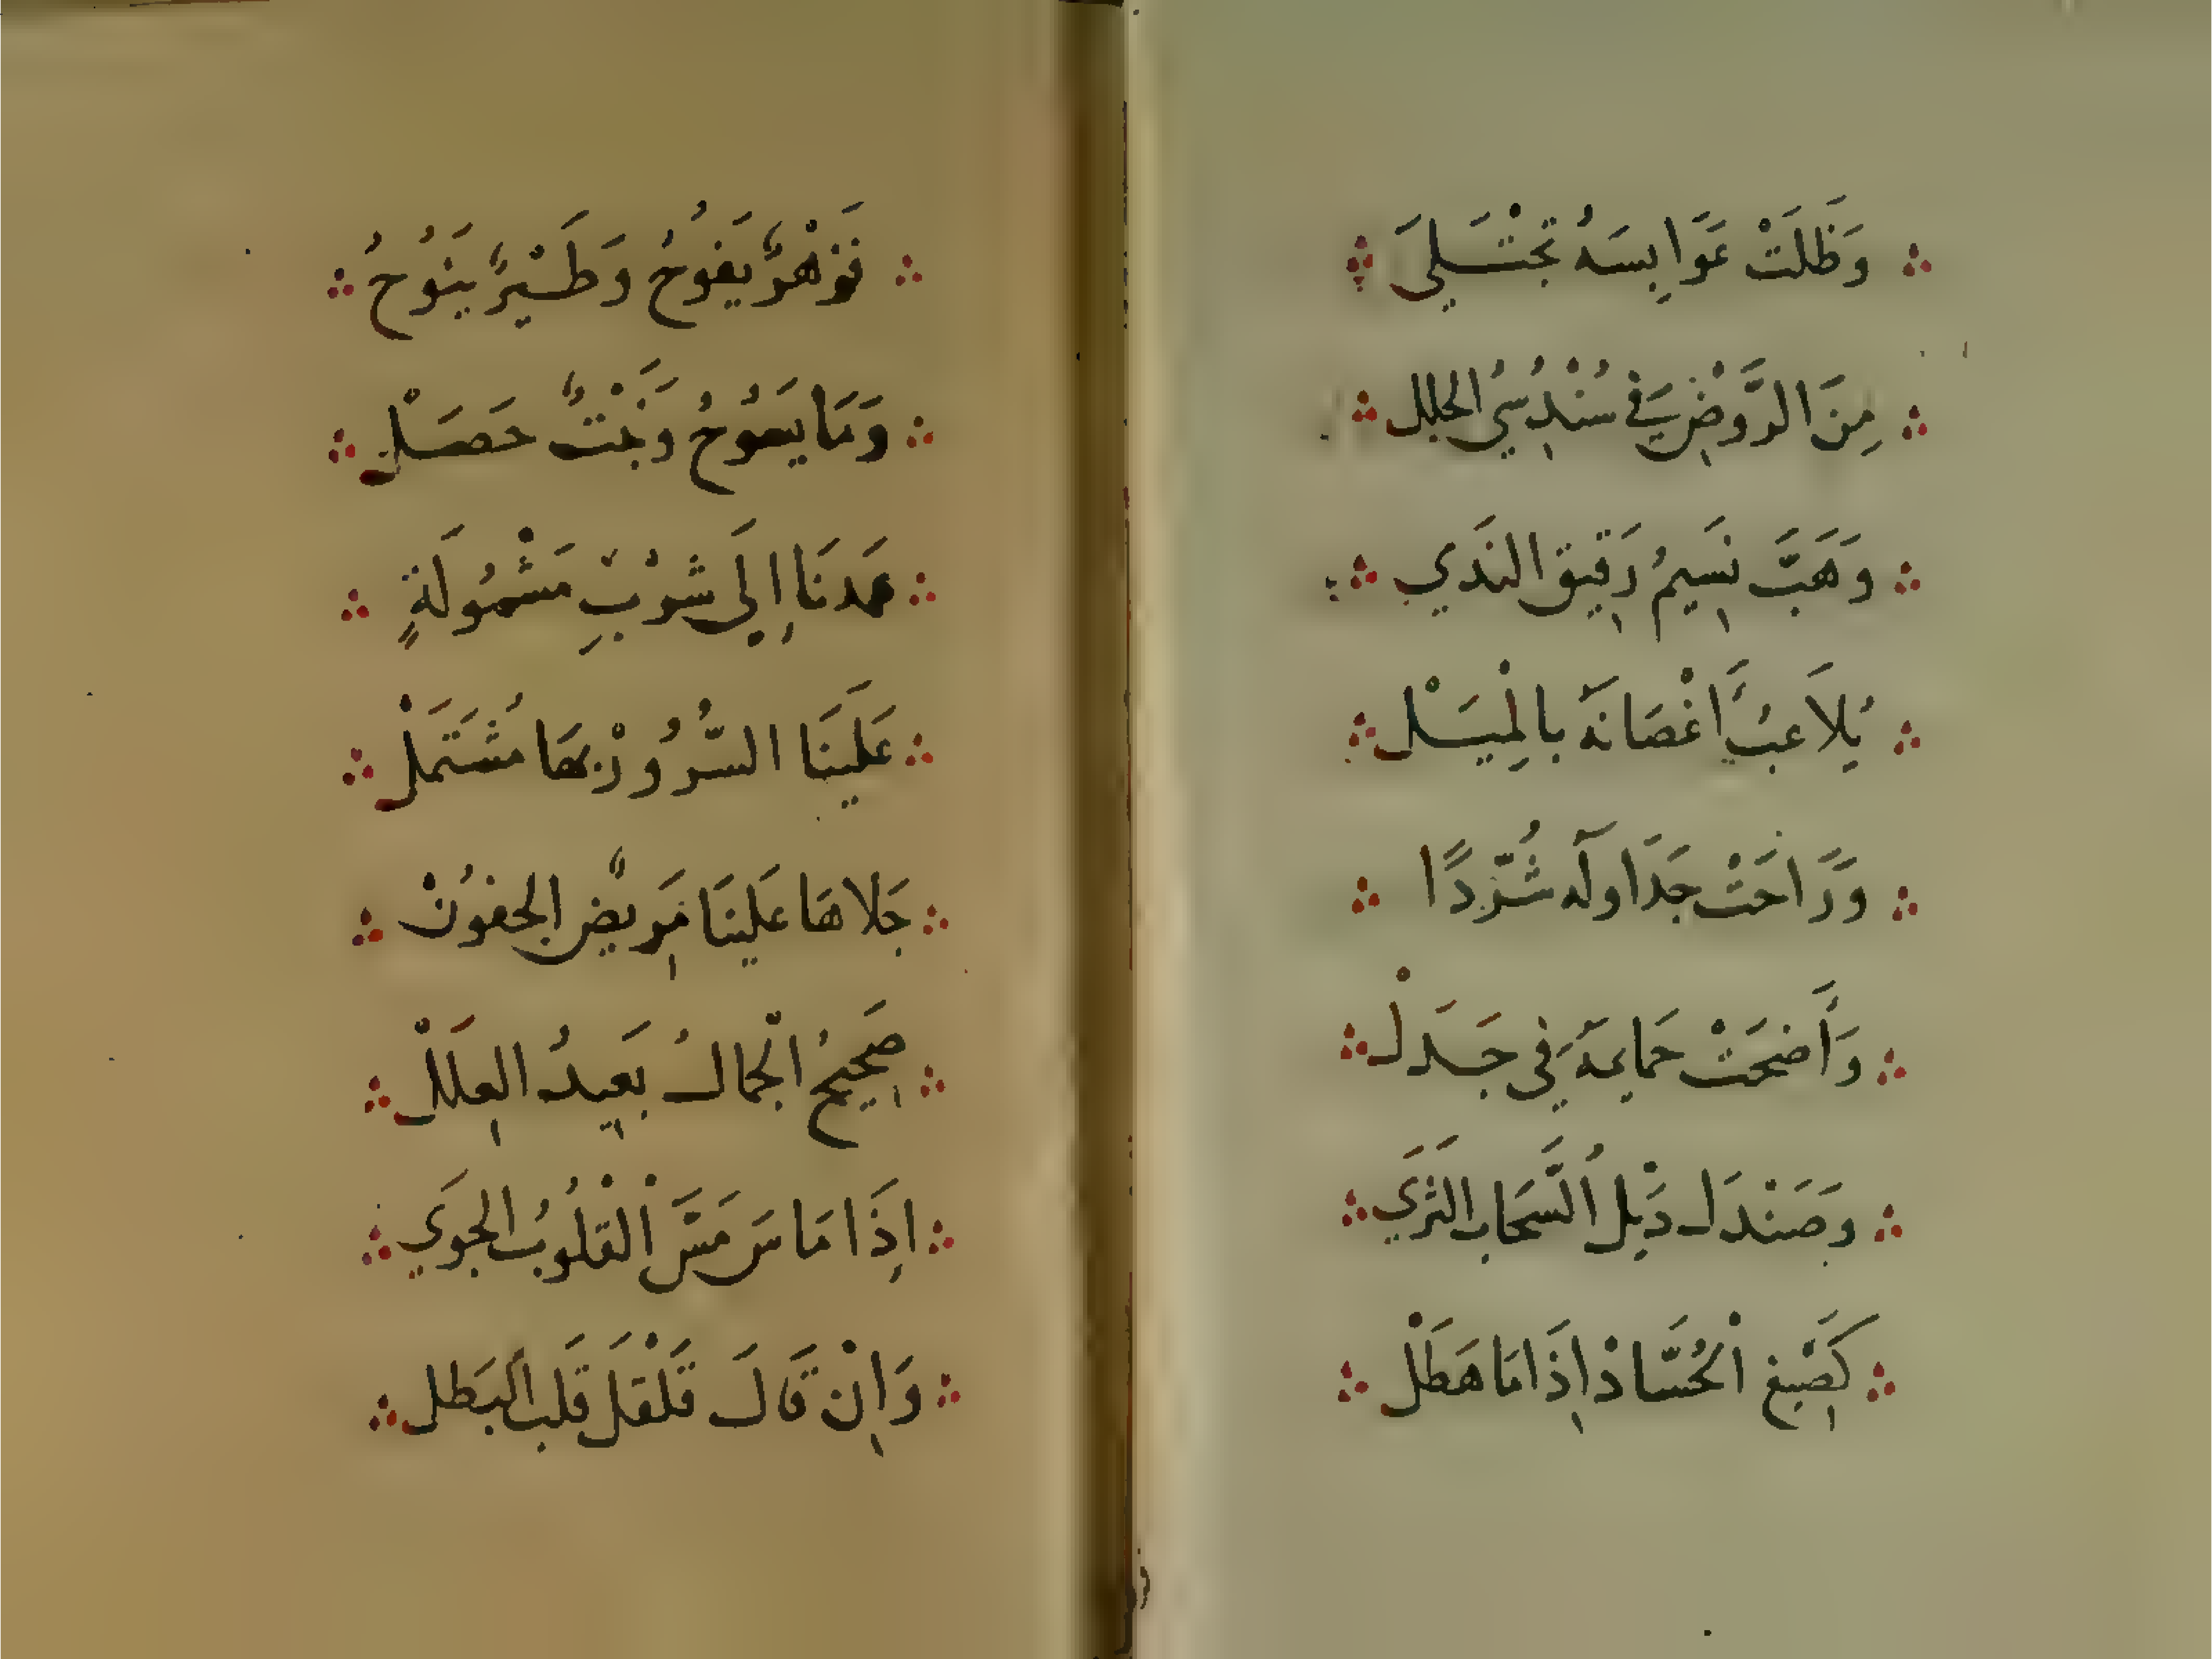 وَظَلَتْ عَوَابِسَهُ تَجْتَلِي
مِنَ الرَّوْضِ فِي سُنْدُسِيُ الحلل
وَهَبَّ نَسِيمُ رَقِيق النَدَي
يُلاَعِبُ أَغْصَانَهَ بالْمِيَلْ
وَرَاحَتْ جَدَاوله شُرَّدًا
وَأَضحَتْ حَمايمهَ فِي جَدَلْ
وَصَنْدَلَ ذَيْلُ السَّحَاب الثرَي
كَصَبْغِ الْحُسَّاذْ إِذَا مَا هَطَلْ
فَزَهْرٌ يَفُوحُ وَطَيْرٌ يَنُوحُ
وَمَا يَسُوحُ وَنَبْتٌ حَصَلْ
عمدنَا إِلَى شرْبِ مَشْمُولَةٍ
عَلَينَا السُّرُورْ بهَا مُشْتَمَلْ
جَلاهَا عَلَينَا مَرِيضُ الجفوُنْ
صَحِيحُ الْجمالُ بَعِيدُ العِلَلْ
إِذَا مَاسَ مَسَّ الْقلْوُبُ الجوَي
وَإِنْ قَالَ قَلْقَلَ قَلبَ البَطل